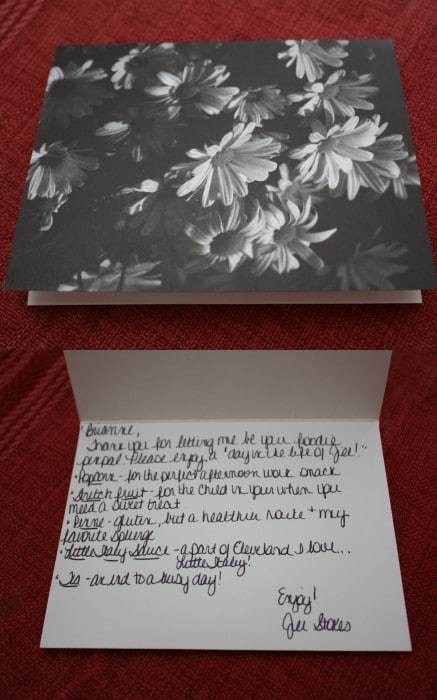 Brianne,
Thank you for letting me be your foodie
penpal. Please enjoy a "day in the life of Jee!"
• Popcorn - for the perfect afternoon work snack
• Stretch fruit - for the child in you when you
need a sweet treat
• Penne - gluten, but a healthier route + my
favorite splurge
• Little Italy Sauce - a part of Cleveland I love...
Little Italy!
• Tea - an end to a busy day!
Enjoy!
Stokes